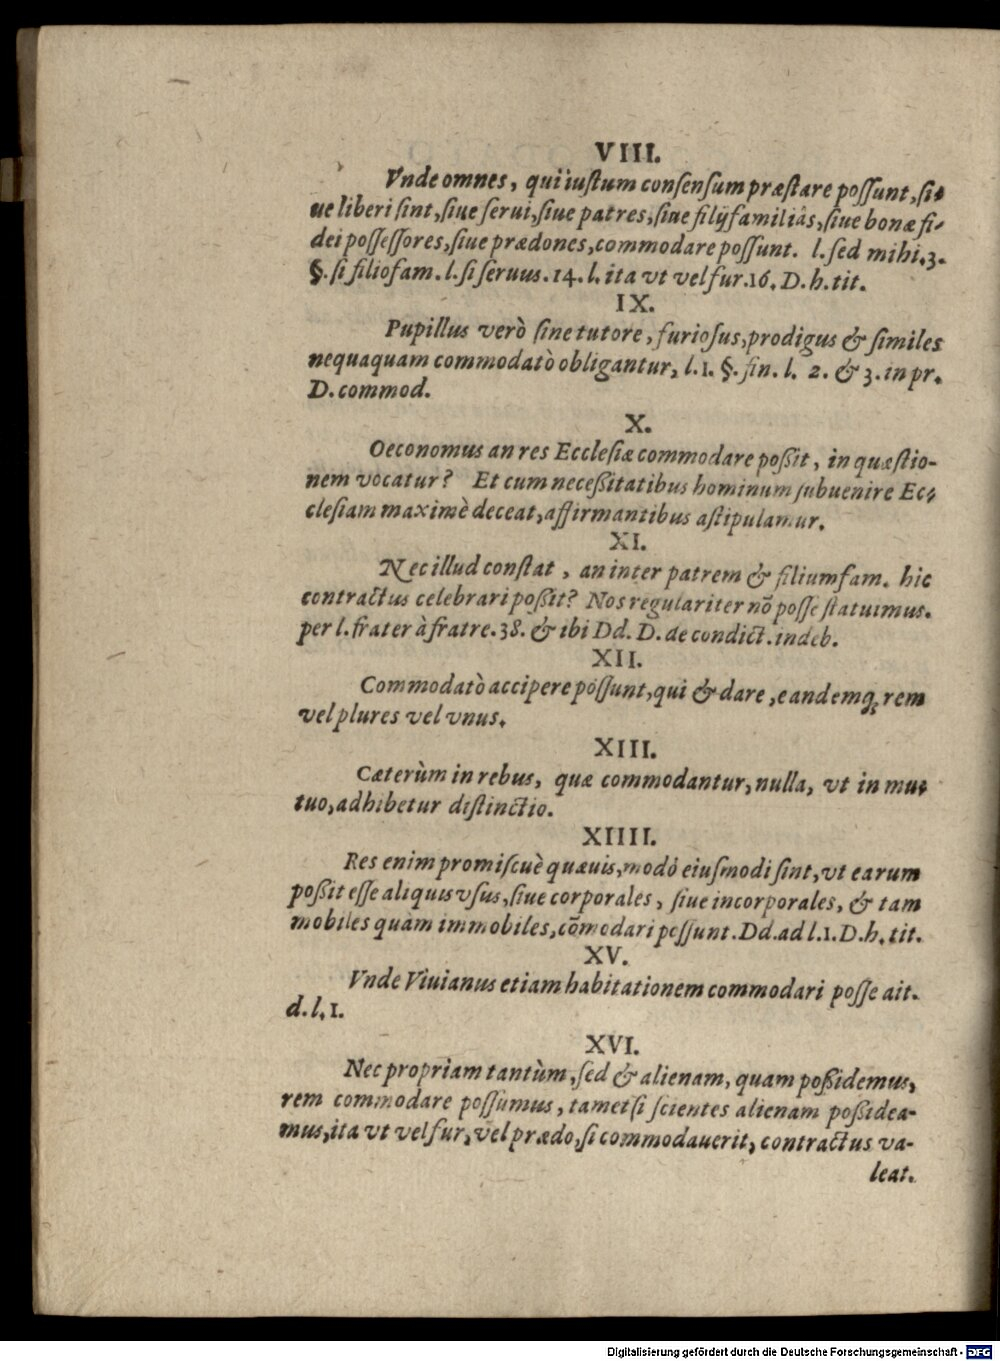 VIII.
Vnde omnes, qui iustum consensum præstare possunt, si-
ue liberi sint, siue serui, siue patres, siue filijfamiliâs, siue bonæ fi-
dei possessores, siue prædones, commodare possunt. l. sed mihi. 3.
§. si filiofam. l. si seruus. 14. l. ita vt vel fur. 16. D. h. tit.
IX.
Pupillus verò sine tutore, furiosus, prodigus & similes
nequaquam commodatò obligantur, l. 1. §. fin. l. 2. & 3. in pr.
D. commod.
X.
Oeconomus an res Ecclesiæ commodare poßit, in quæstio-
nem vocatur? Et cum neceßitatibus hominum subuenire Ec-
clesiam maximè deceat, affirmantibus astipulamur.
XI.
Nec illud constat, an inter patrem & filiumfam. hic
contractus celebrari poßit? Nos regulariter nō posse statuimus.
per l. frater à fratre. 38. & ibi Dd. D. de condict. indeb.
XII.
Commodatò accipere possunt, qui & dare, eandemq; rem
vel plures vel vnus.
XIII.
Cæterùm in rebus, quæ commodantur, nulla, vt in mu-
tuo, adhibetur distinctio.
XIIII.
Res enim promiscuè quæuis, modò eiusmodi sint, vt earum
poßit esse aliquis vsus, siue corporales, siue incorporales, & tam
mobiles quàm immobiles, cōmodari possunt. Dd. ad l. 1. D. h. tit.
XV.
Vnde Viuianus etiam habitationem commodari posse ait.
d. l. 1.
XVI.
Nec propriam tantùm, sed & alienam, quam poßidemus,
rem commodare possumus, tametsi scientes alienam poßidea-
mus, ita vt vel fur, vel prædo, si commodauerit, contractus va-
leat.
Digitalisierung gefördert durch die Deutsche Forschungsgemeinschaft - DFG